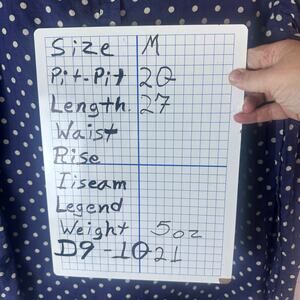 Size M
Pit-Pit 20
Length. 27
Waist
Rise
Iiseam
Legend
Weight 5oz
D9-10 21